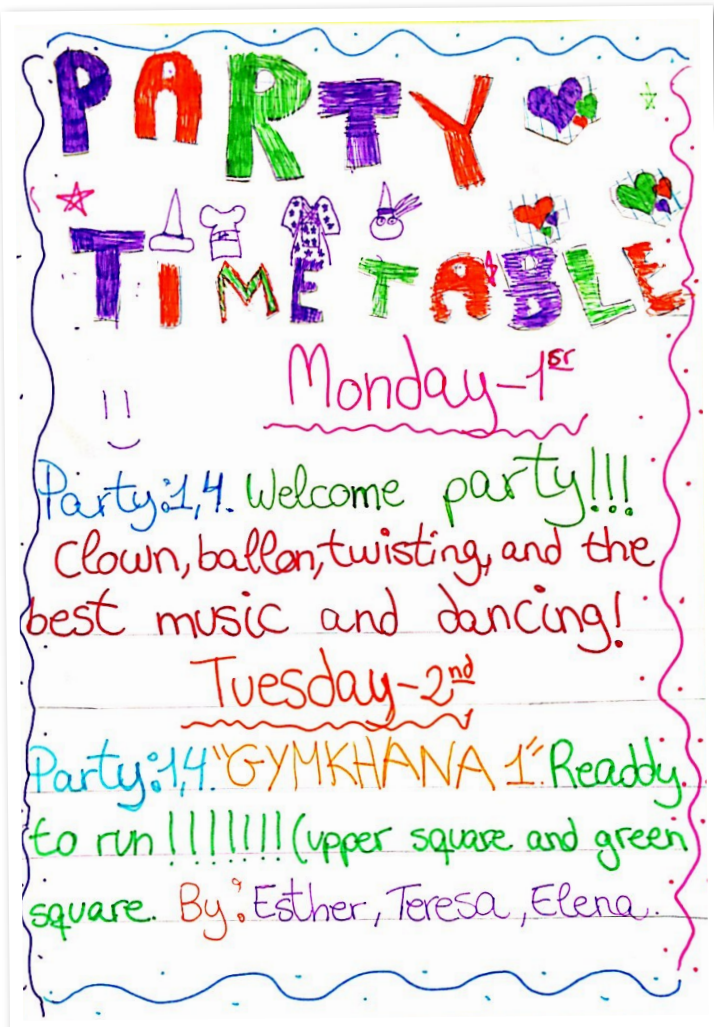 PARTY
TIMETABLE
Monday-1st
Party:1,4. Welcome party!!!
Clown, ballon, twisting, and the
best music and dancing!
Tuesday-2nd
Party:1,4."GYMKHANA 1". Readdy
to run !!!!!!! (upper square and green
square. By: Esther, Teresa, Elena.